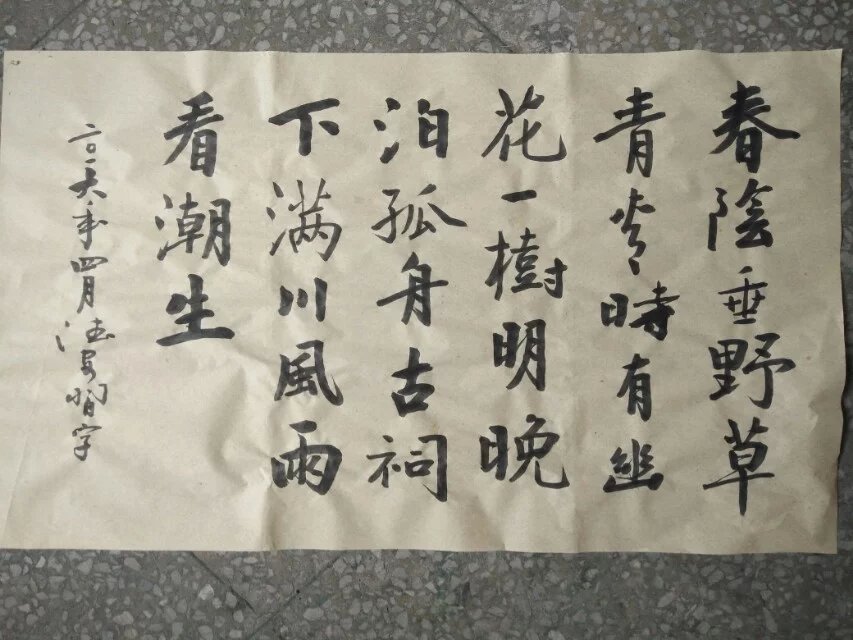 春陰垂野草
青青時有幽
花一樹明晚
泊孤舟古祠
下满川風雨
看潮生
二〇一六年四月